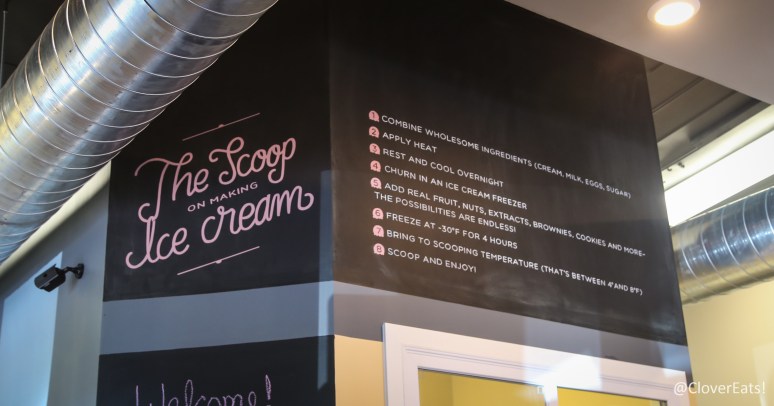 The Scoop
ON MAKING
Ice cream
1 COMBINE WHOLESOME INGREDIENTS (CREAM, MILK, EGGS, SUGAR)
2 APPLY HEAT
3 REST AND COOL OVERNIGHT
4 CHURN IN AN ICE CREAM FREEZER
5 ADD REAL FRUIT, NUTS, EXTRACTS, BROWNIES, COOKIES AND MORE-
THE POSSIBILITIES ARE ENDLESS!
6 FREEZE AT -30°F FOR 4 HOURS
7 BRING TO SCOOPING TEMPERATURE (THAT'S BETWEEN 4°AND 8°F)
8 SCOOP AND ENJOY!
Welcome!
@CloverEats!